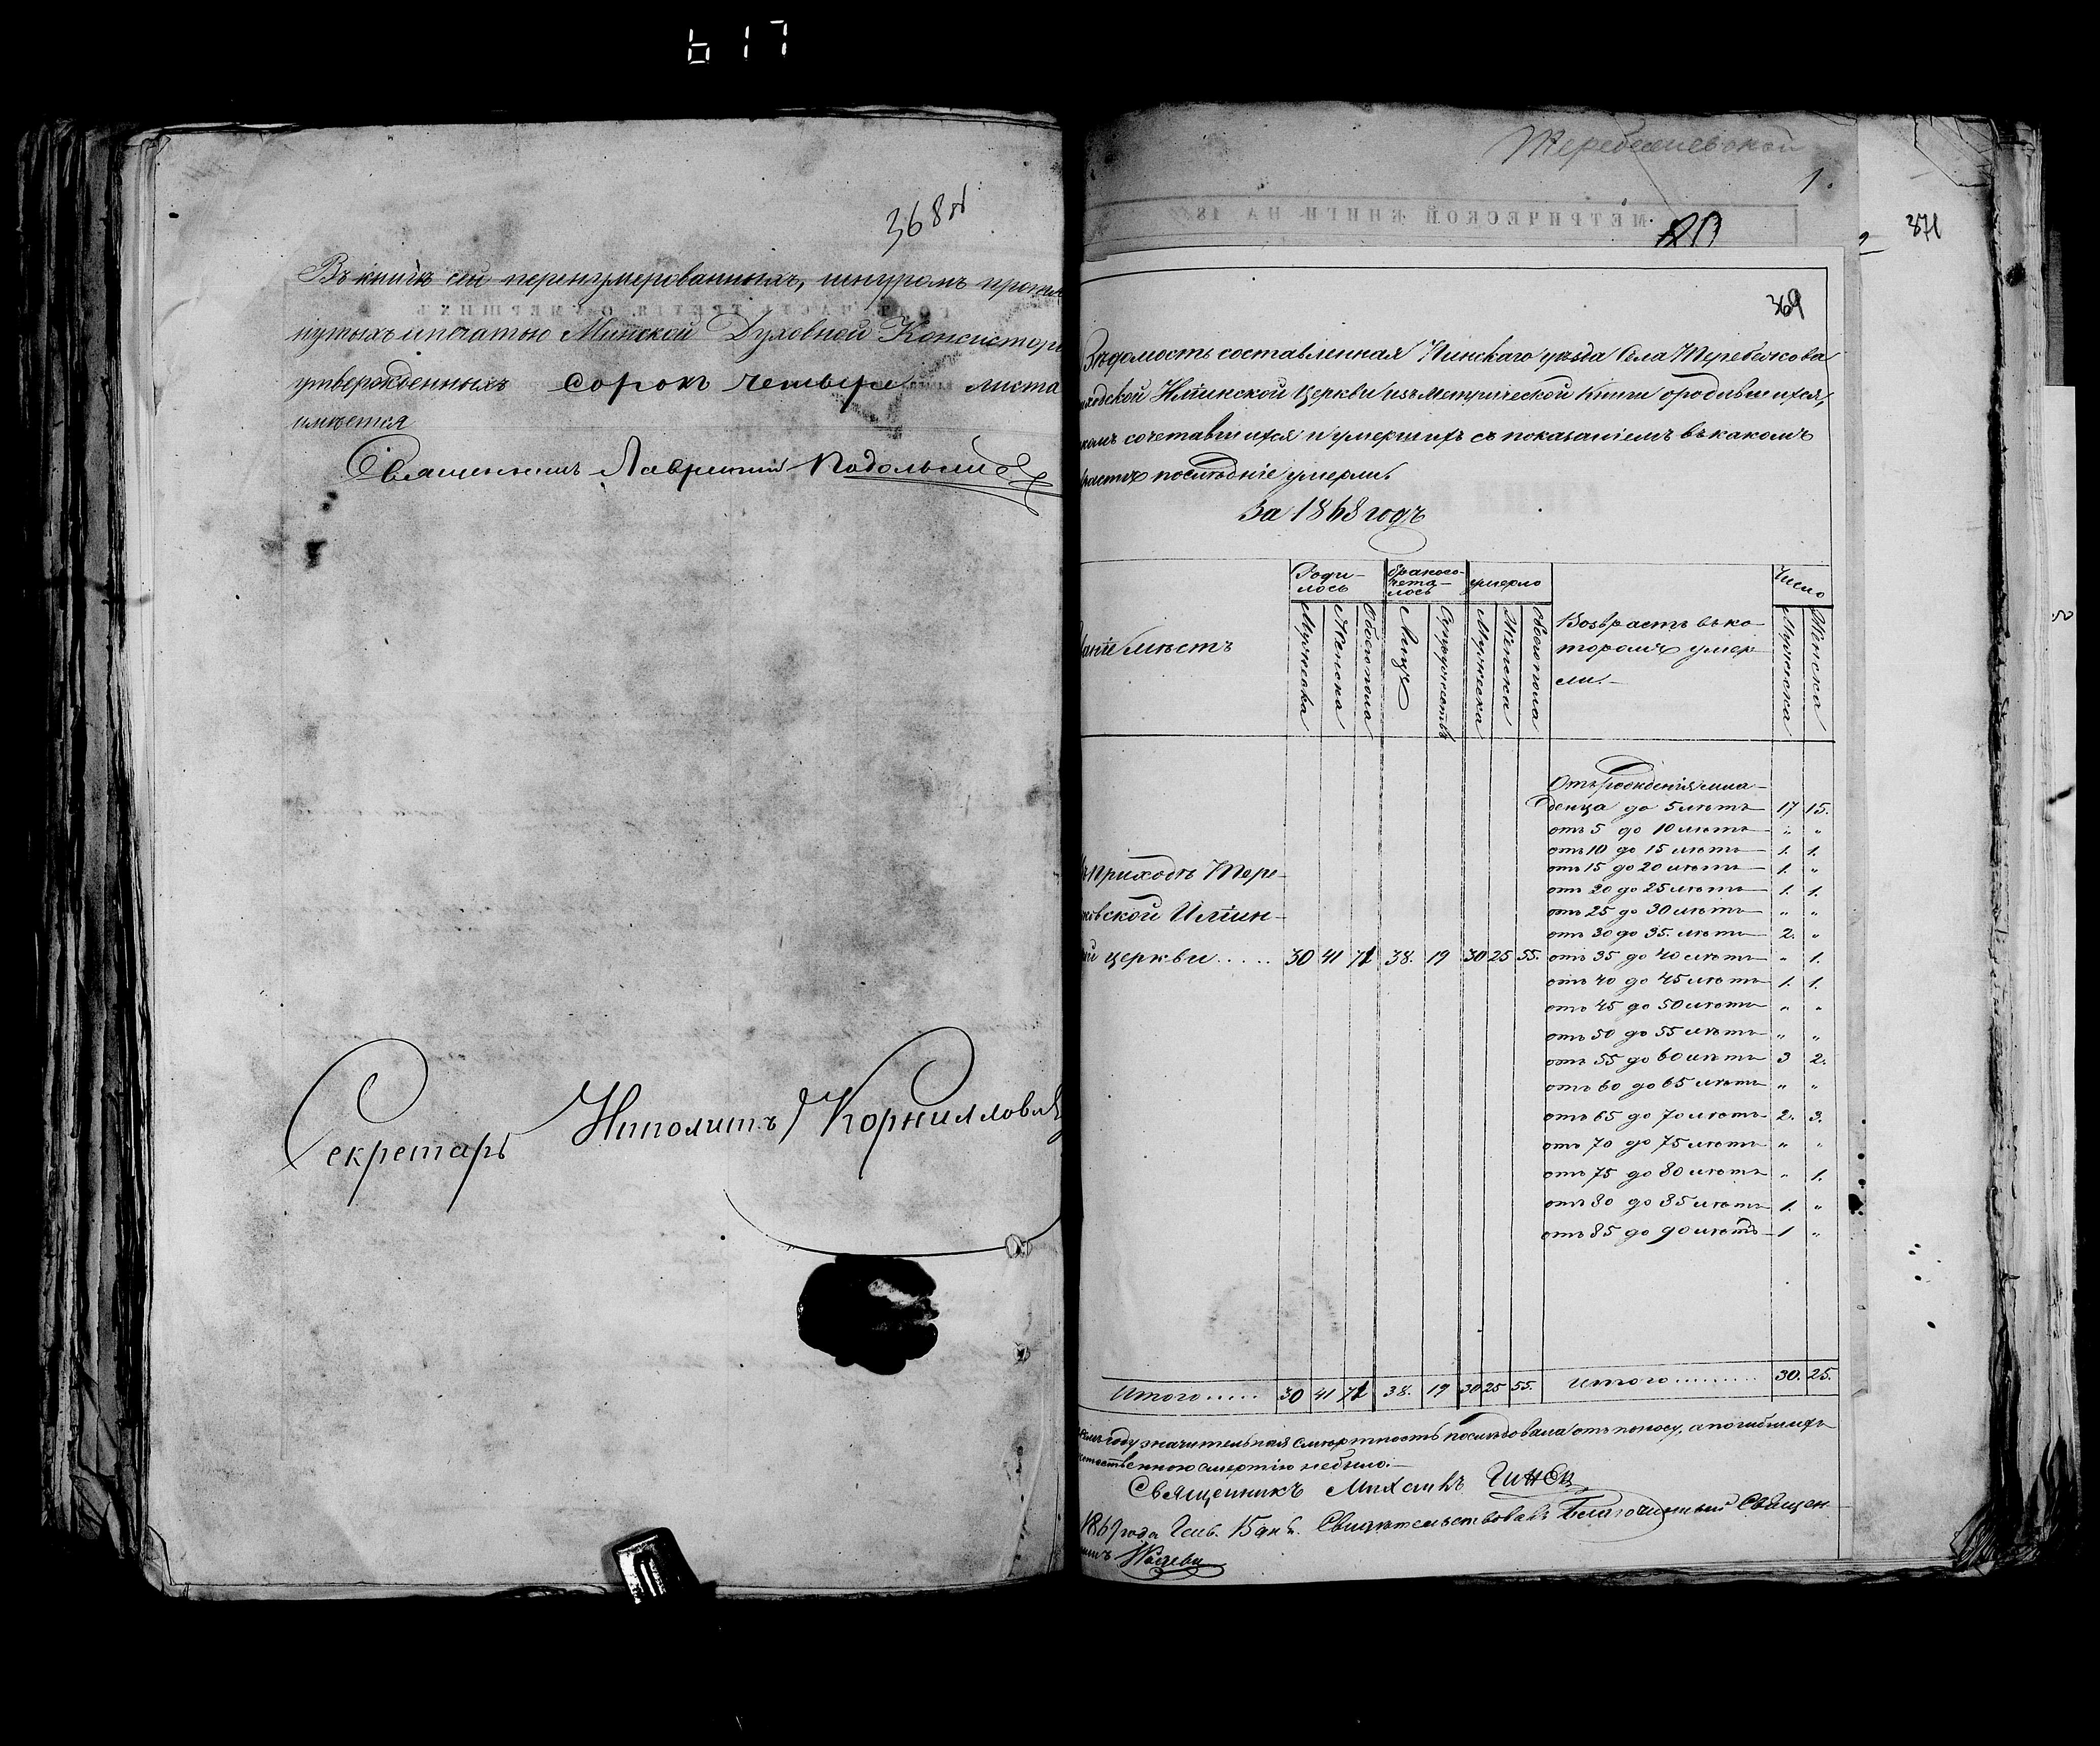 617
368 N
Въ книгѣ сей перенумерованныхъ, шнуромъ прошн
нутыхъ и печатью Минской Духовной Консисторі
утвержденныхъ сорокъ четыре листа
имѣется
Священникъ Лаврентій Подольскій
Секретарь Ипполитъ Корнилловъ
1.
МЕТРИЧЕСКОЙ КНИГИ НА 18
371
369
Вѣдомость составленная Пинскаго уѣзда Села Теребежова
иходской Церкви изъ Метрической Книги о родившихся,
комъ сочетавшихся и умершихъ съ показаніемъ въ какомъ
растѣ послѣдніе умерли.
За 1868 годъ
Роди-лось
бракосо-чета-лось
умерло
Возврастъ въ ко-
торомъ умер
ли.
Число
Мужеска
Женска
Обоего пола
Лицъ
Супружествъ
Мужеска
Женска
Обоего пола
Мужеска
Женска
ваніе мѣстъ
Отъ рожденія мла-
денца до 5 лѣтъ 17 15.
отъ 5 до 10 лѣтъ " "
отъ 10 до 15 лѣтъ 1. 1.
отъ 15 до 20 лѣтъ 1. "
отъ 20 до 25 лѣтъ 1. 1.
отъ 25 до 30 лѣтъ " "
отъ 30 до 35. лѣтъ 2. "
ъ приходѣ Тере-
ковской
й церкви..... 30 41 71 38. 19 30 25 55. отъ 35 до 40 лѣтъ " 1.
отъ 40 до 45 лѣтъ 1. 1.
отъ 45 до 50 лѣтъ " "
отъ 50 до 55 лѣтъ " "
отъ 55 до 60 лѣтъ 3 2.
отъ 60 до 65 лѣтъ " "
отъ 65 до 70 лѣтъ 2. 3.
отъ 70 до 75 лѣтъ " "
отъ 75 до 80 лѣтъ " 1.
отъ 80 до 85 лѣтъ 1. "
отъ 85 до 90 лѣтъ 1 "
Итого..... 30 41 71 38. 19 30 25 55. Итого......... 30. 25.
году значительная смертность послѣдовала отъ поносу, а погибшихъ
естественною смертію не было.
Священникъ Михаилъ
1869 года Генв. 15 дня. Свидѣтельствовалъ Благочинный Священ
никъ